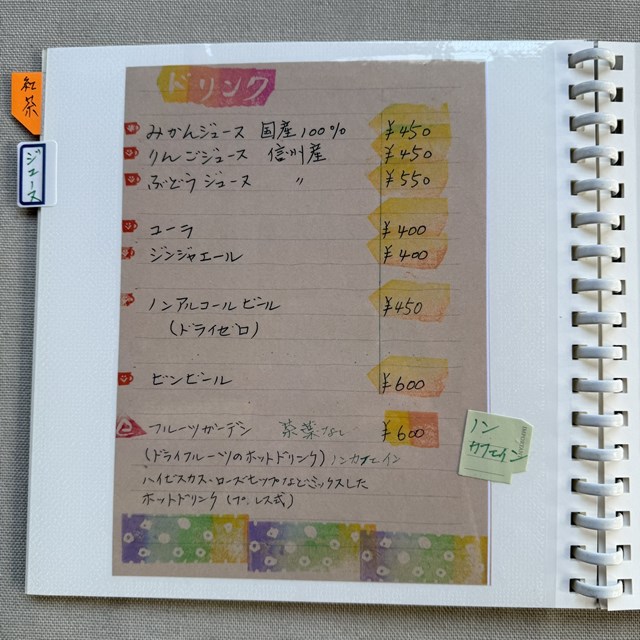 紅茶
ジュース
ドリンク
みかんジュース 国産100% ¥450
りんごジュース 信州産 ¥450
ぶどうジュース 〃 ¥550
コーラ ¥400
ジンジャエール ¥400
ノンアルコールビール ¥450
(ドライゼロ)
ビンビール ¥600
フルーツガーデン 茶葉なし ¥600
(ドライフルーツのホットドリンク) ノンカフェイン
ハイビスカス・ローズヒップなどミックスした
ホットドリンク (プレス式)
ノン
カフェイン